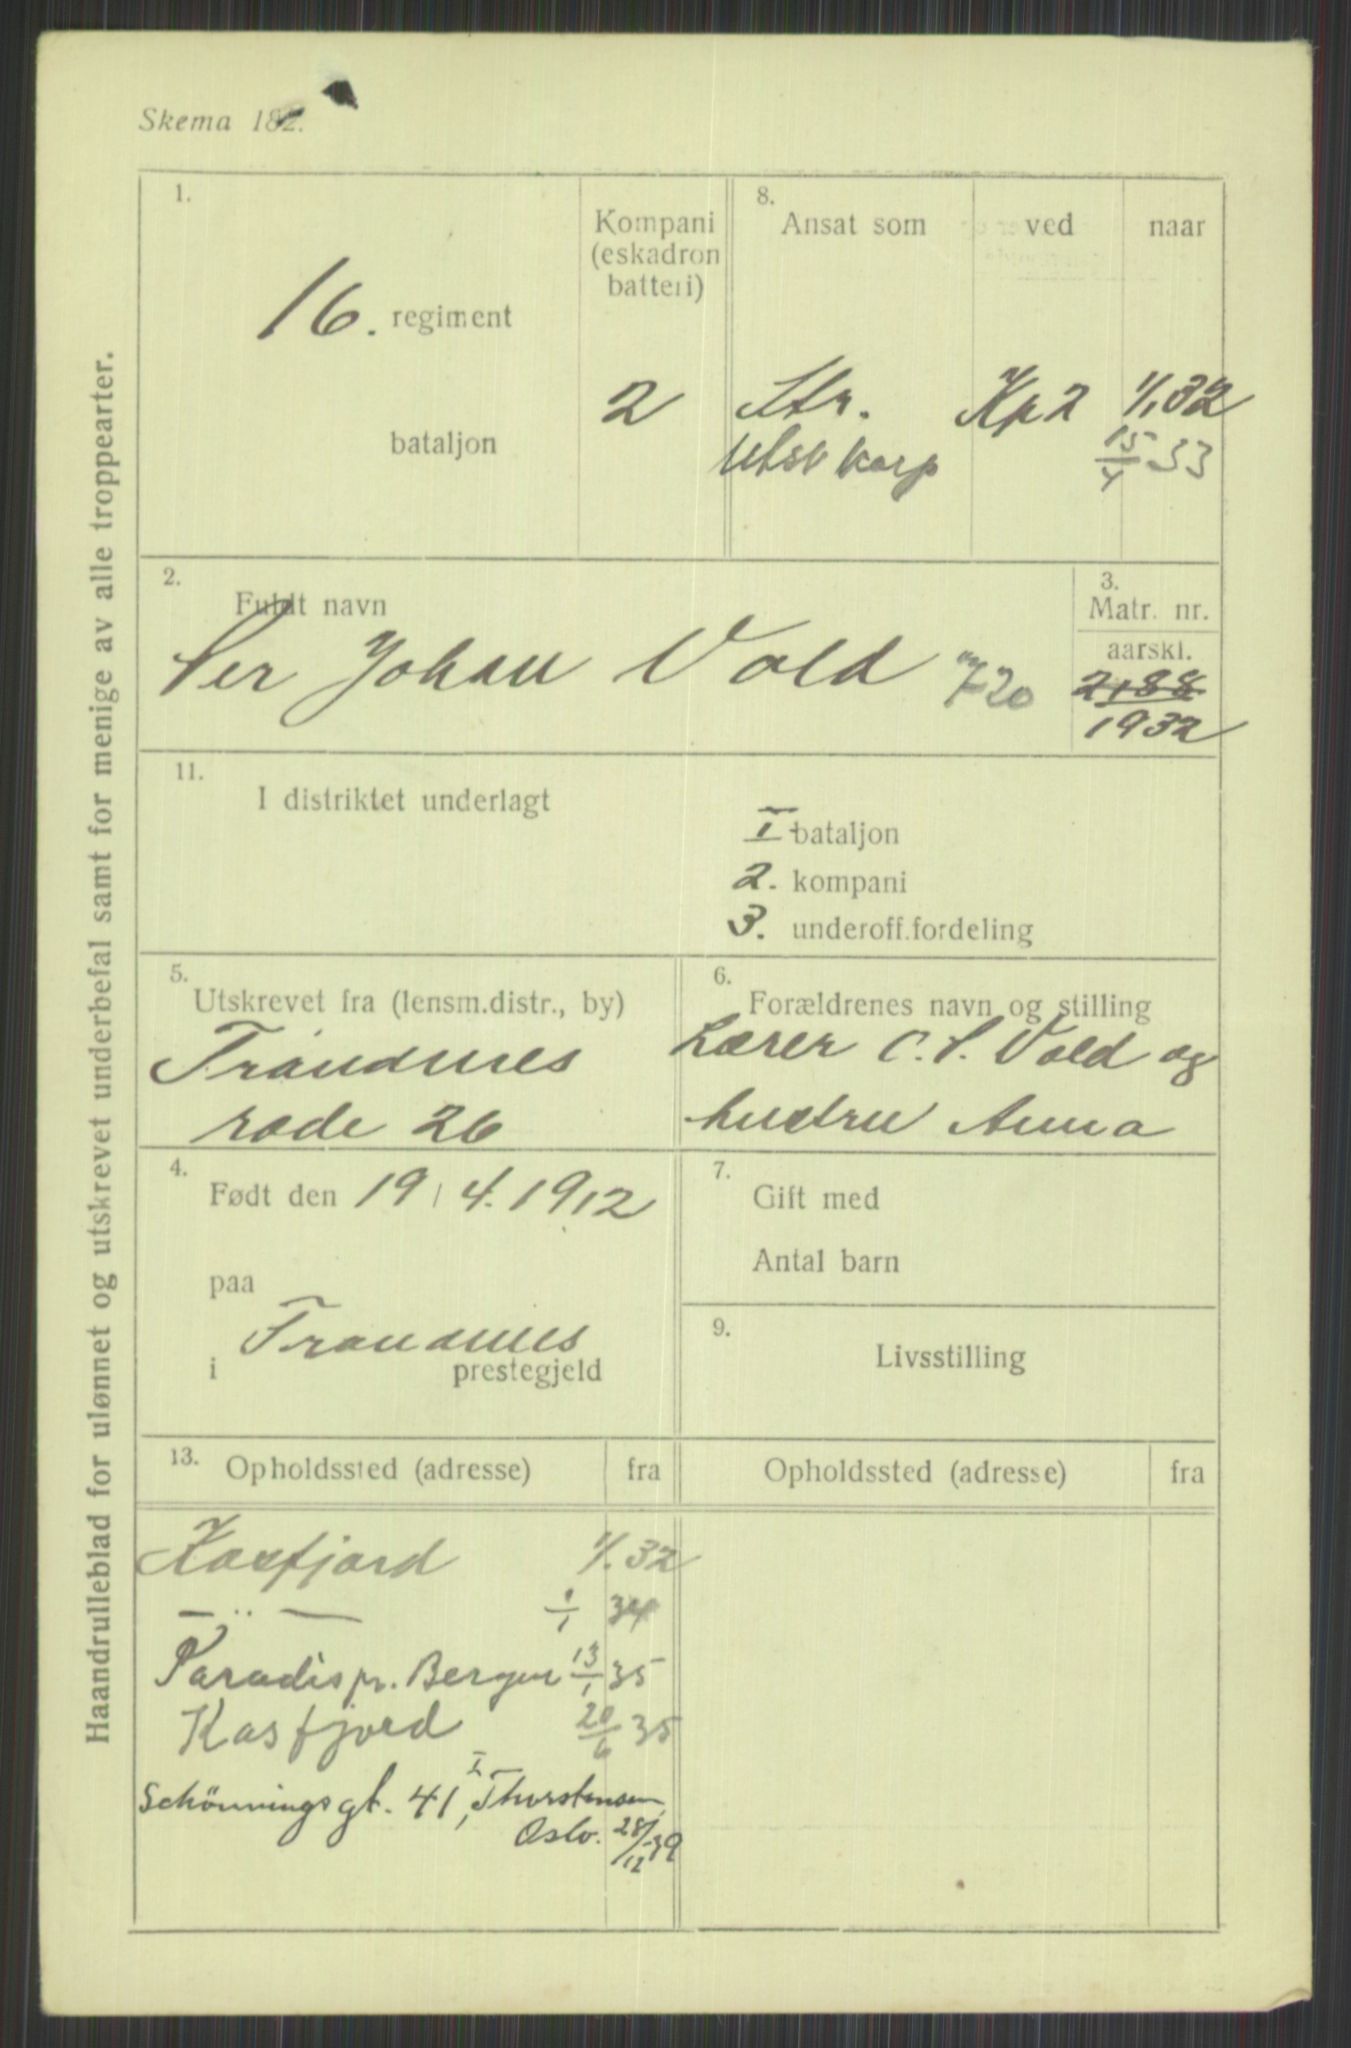 Skema 182.
Haandrulleblad for ulønnet og utskrevet underbefal samt for menige av alle troppearter.
1.
16. regiment
bataljon
Kompani
(eskadron
batteri)
2
8.
Ansat som ved naar
Str. Kp 2 1/1 32
Utsk korp 15/4 33
2.
Fuldt navn
Per Johan Vold 720
3.
Matr. nr.
aarskl.
2188
1932
11.
I distriktet underlagt
I bataljon
2. kompani
3. underoff.fordeling
5.
Utskrevet fra (lensm.distr., by)
Trondenes
rode 26
6.
Forældrenes navn og stilling
Lærer O. P. Vold og
hustru Anna
4.
Født den 19/4.1912
paa
Trondenes
i prestegjeld
7.
Gift med
Antal barn
9.
Livsstilling
13.
Opholdssted (adresse) fra
Opholdssted (adresse) fra
Kasfjord 1/1 32
— " — 1/1 34
Paradis pr. Bergen 13/1 35
Kasfjord 20/6 35
Schönningsgt. 41, I Thorstensen,
Oslo. 28/12-39